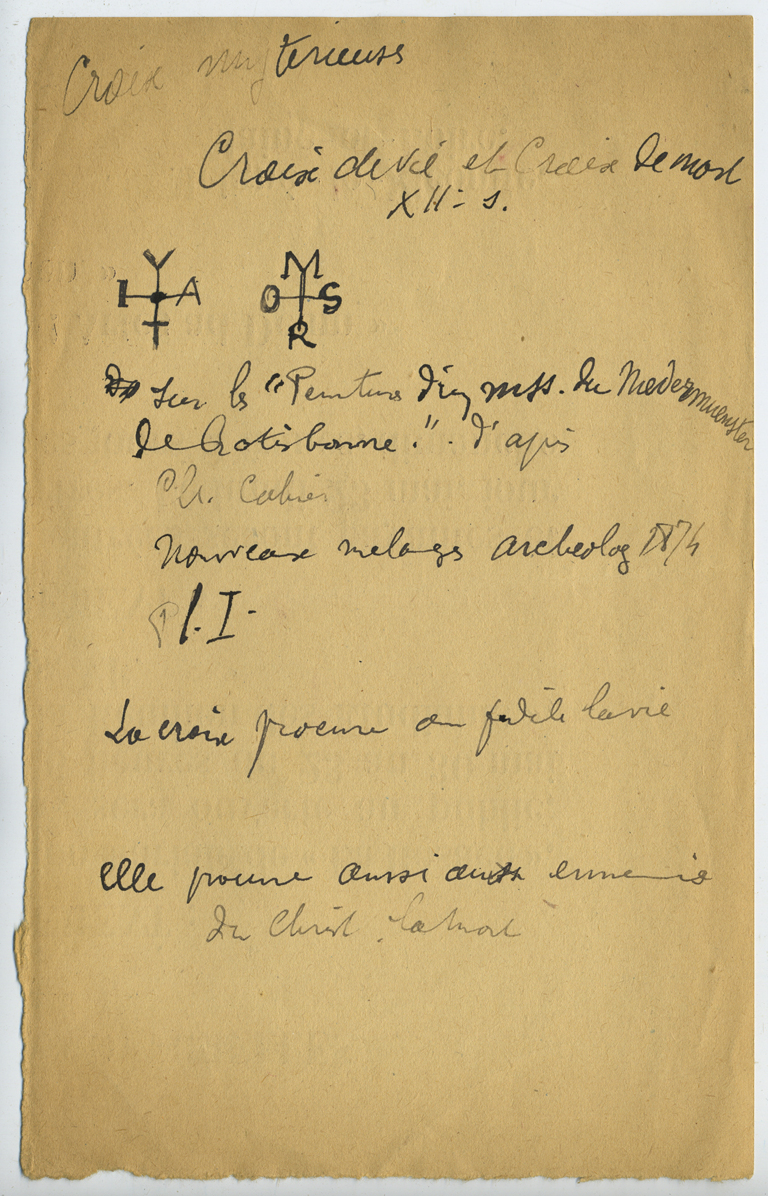 Croix mysterieuses
Croix de vie et Croix de mort
XIIe s.
V M
I A O S
T R
sur les "Peintures d'un mss. du Niedermuenster
de Ratisbonne.". d'après
Ch. Cahier
Nouveaux melanges archeolog 1874
Pl. I.
La croix procure au fidèle la vie
elle procure aussi aux ennemis
du Christ la mort